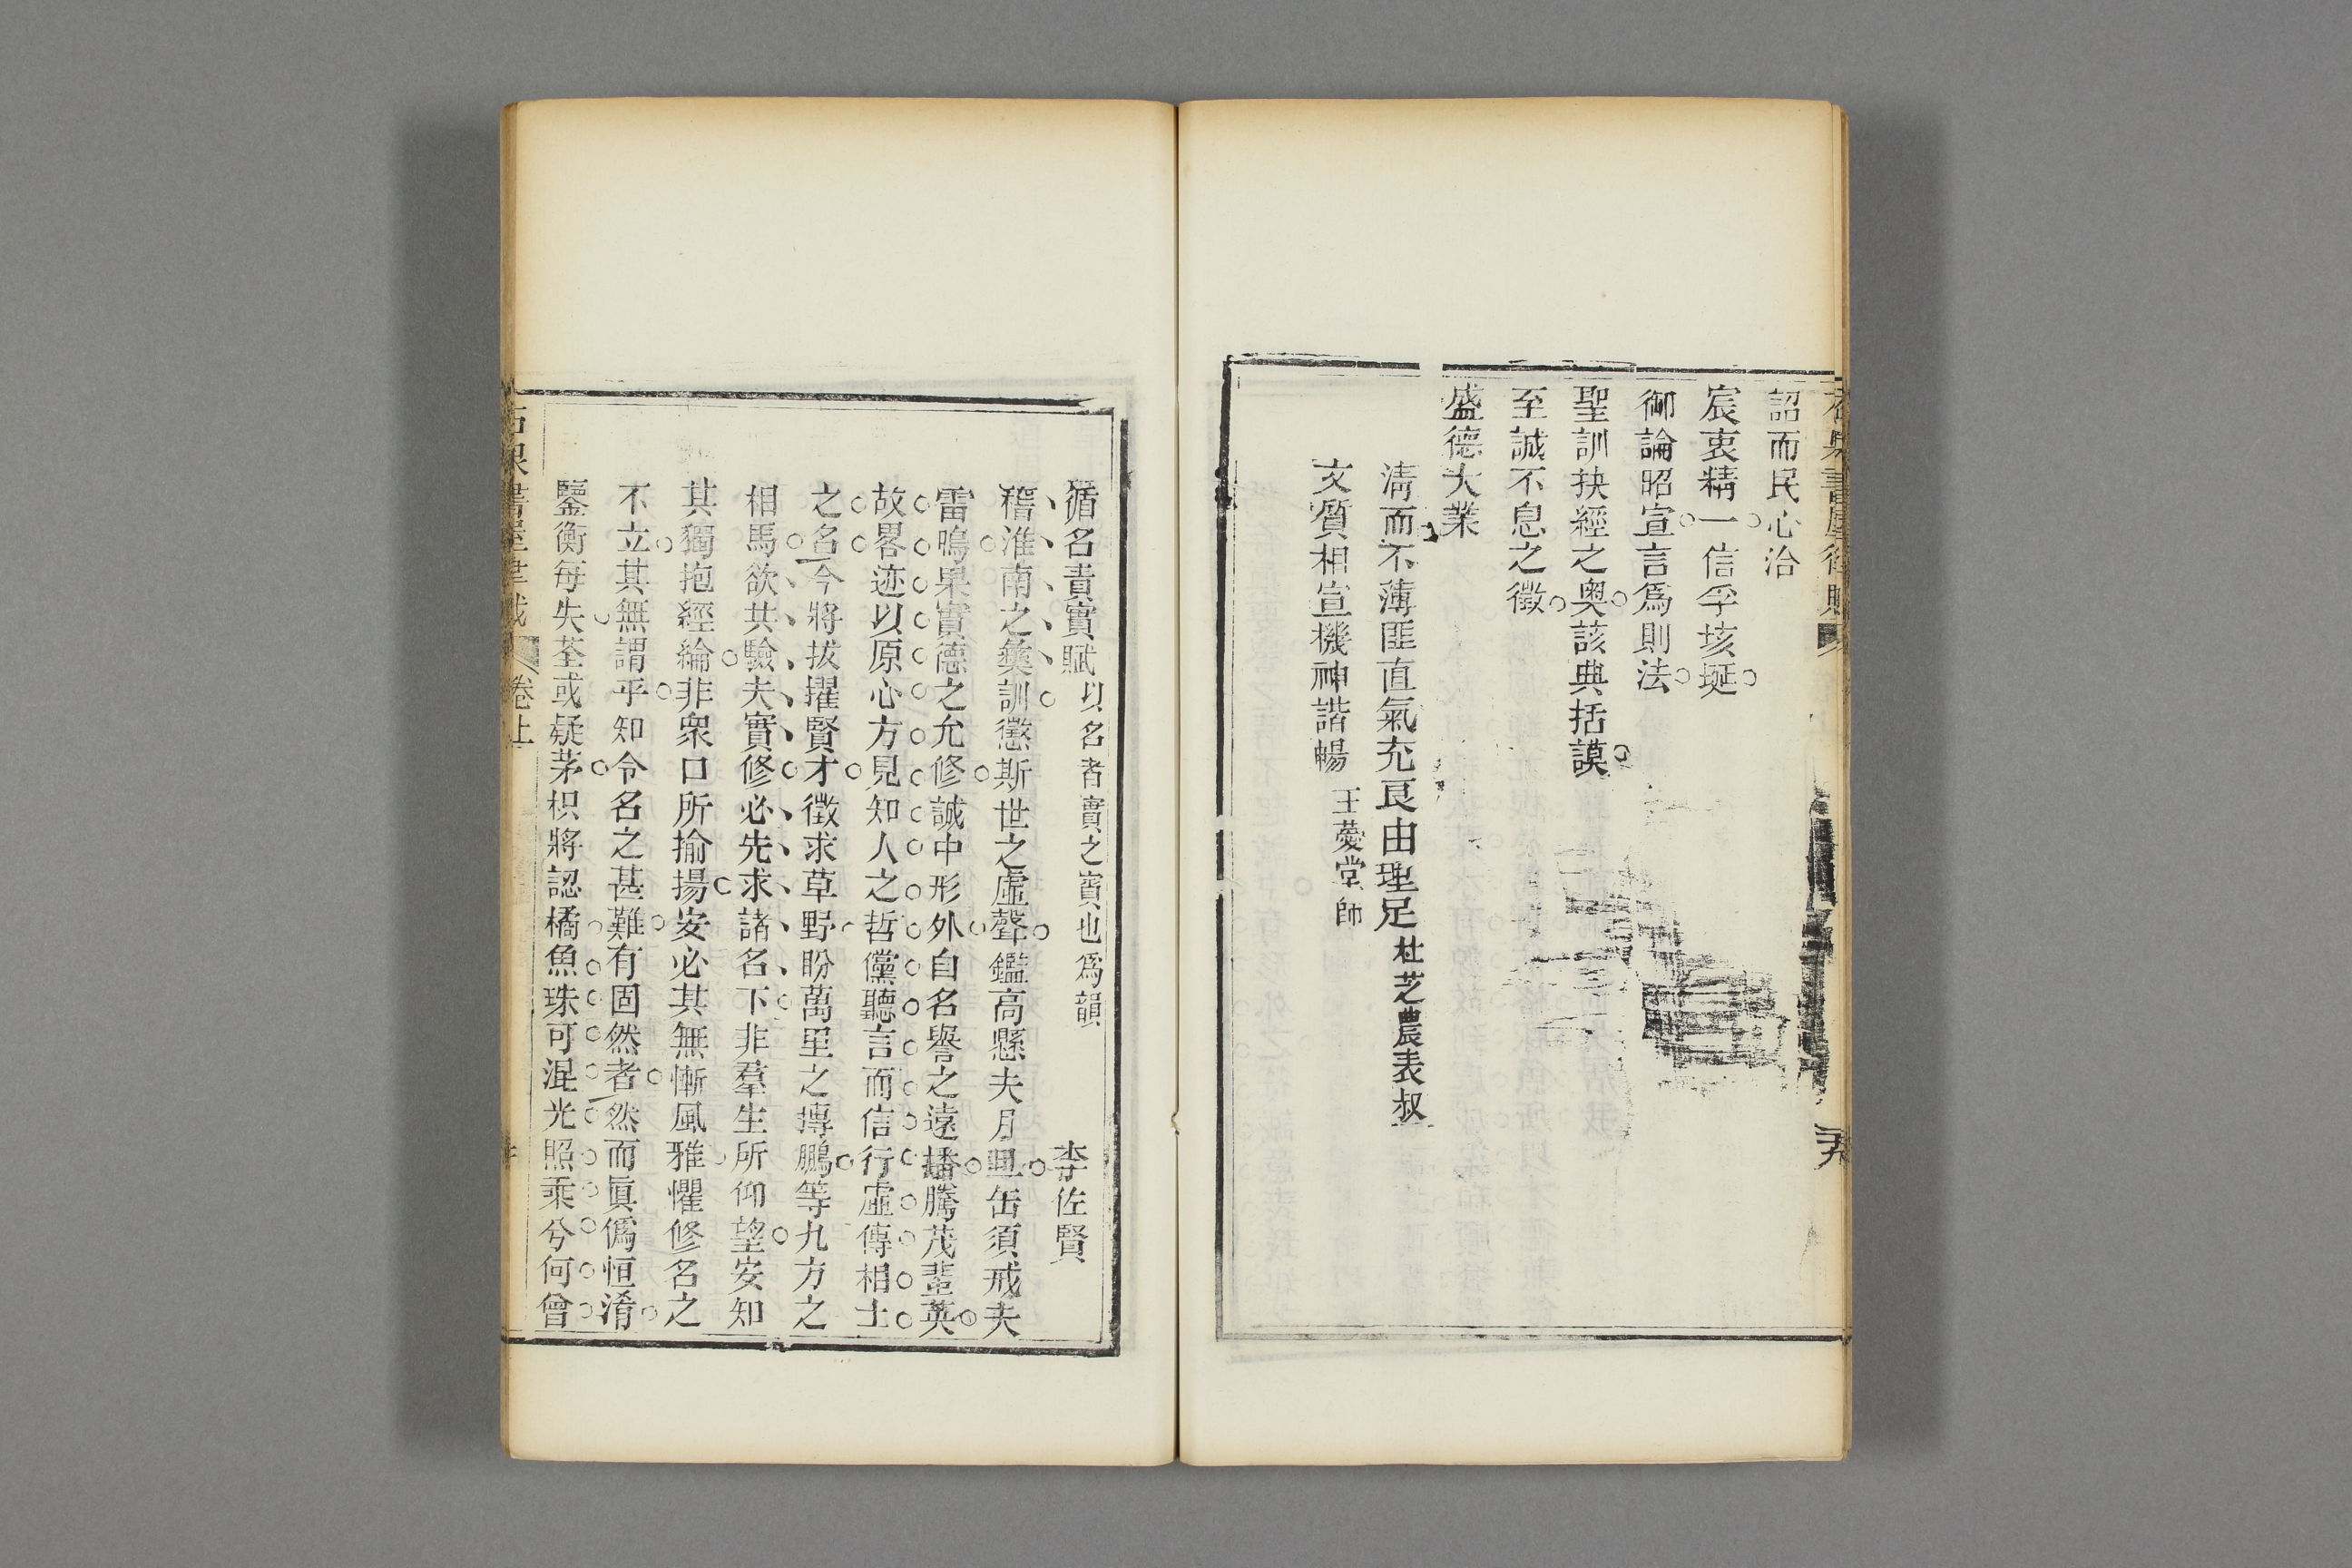 詔而民心洽
宸衷精一信孚垓埏
御論昭宣言爲則法
聖訓抉經之奧該典括謨
至誠不息之徵
盛德大業
清而不薄匪直氣充良由理足 杜芝農表叔
文質相宣機神諧暢 王薆堂師
循名責實賦 以名者實之賓也爲韻 李佐賢
稽淮南之彞訓懲斯世之虛聲鑑高懸夫月旦缶須戒夫
雷鳴果實德之允修誠中形外自名譽之遠播騰茂蜚英
故畧迹以原心方見知人之哲儻聽言而信行虛傳相士
之名今將拔擢賢才徵求草野盼萬里之摶鵬等九方之
相馬欲其驗夫實修必先求諸名下非羣生所仰望安知
其獨抱經綸非衆口所揄揚安必其無慚風雅懼修名之
不立其無謂乎知令名之甚難有固然者然而眞僞恒淆
鑒衡每失荃或疑茅枳將認橘魚珠可混光照乘兮何曾
石泉書屋律賦 卷上